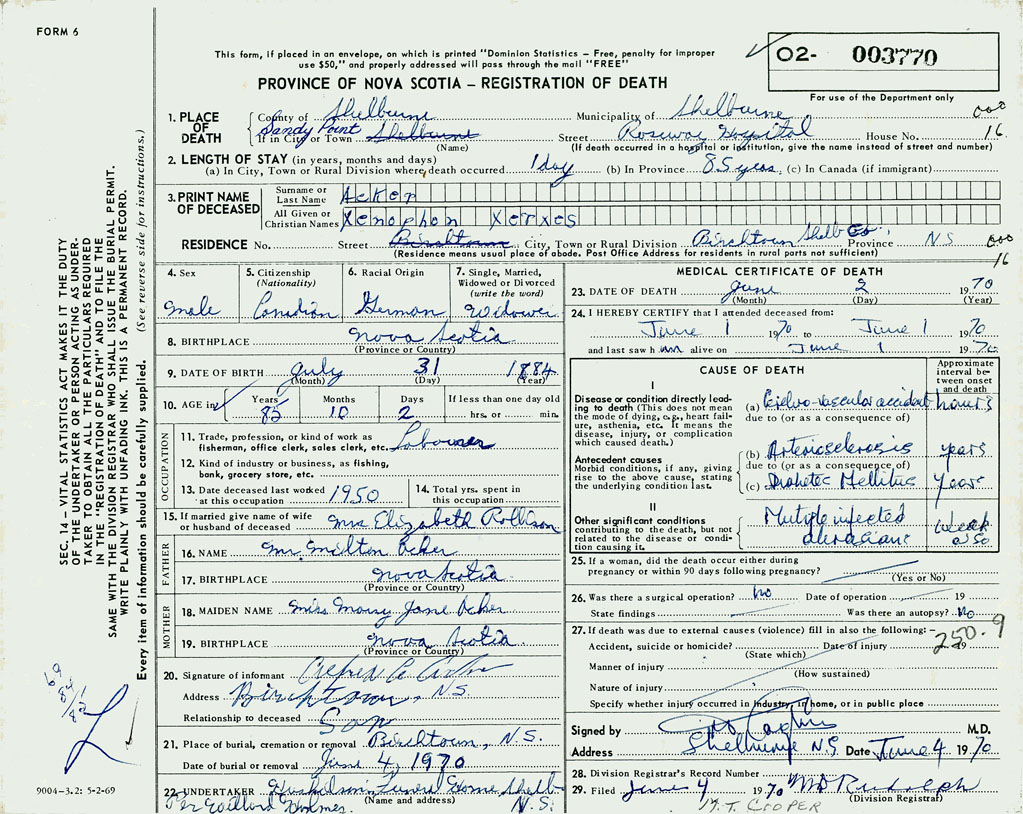 FORM 6
This form, if placed in an envelope, on which is printed "Dominion Statistics – Free, penalty for improper
use $50," and properly addressed will pass through the mail "FREE"
02- 003770
For use of the Department only
PROVINCE OF NOVA SCOTIA – REGISTRATION OF DEATH
1. PLACE OF DEATH County of Shelburne Municipality of Shelburne 000
Sandy Point
If in City or Town Shelburne Street Roseway Hospital House No. 16
(Name) (If death occurred in a hospital or institution, give the name instead of street and number)
2. LENGTH OF STAY (in years, months and days)
(a) In City, Town or Rural Division where death occurred 1 day (b) In Province 85 years (c) In Canada (if immigrant)
3. PRINT NAME OF DECEASED Surname or Last Name Acker
All Given or Christian Names Xenophon Xerxes
RESIDENCE No. Street Birchtown City, Town or Rural Division Birchtown Shelb Co. Province N S 000
(Residence means usual place of abode. Post Office Address for residents in rural parts not sufficient) 16
4. Sex 5. Citizenship (Nationality) 6. Racial Origin 7. Single, Married, Widowed or Divorced (write the word)
male Canadian German Widower
8. BIRTHPLACE Nova Scotia
(Province or Country)
9. DATE OF BIRTH July 31 1884
(Month) (Day) (Year)
10. AGE in Years Months Days If less than one day old
85 10 2 hrs. or min.
OCCUPATION
11. Trade, profession, or kind of work as
fisherman, office clerk, sales clerk, etc. Labourer
12. Kind of industry or business, as fishing,
bank, grocery store, etc.
13. Date deceased last worked at this occupation 1950 14. Total yrs. spent in this occupation
15. If married give name of wife
or husband of deceased Mrs Elizabeth
FATHER
16. NAME Mr. Milton Acker
17. BIRTHPLACE Nova Scotia
(Province or Country)
MOTHER
18. MAIDEN NAME Miss Mary Jane Acker
19. BIRTHPLACE Nova Scotia
(Province or Country)
20. Signature of informant
Address Birchtown, N.S.
Relationship to deceased Son
21. Place of burial, cremation or removal Birchtown, N.S.
Date of burial or removal June 4, 1970
22. UNDERTAKER Funeral Home Shelb
(Name and address) N.S.
MEDICAL CERTIFICATE OF DEATH
23. DATE OF DEATH June 2 1970
(Month) (Day) (Year)
24. I HEREBY CERTIFY that I attended deceased from:
June 1 1970 to June 1 1970
and last saw him alive on June 1 1970
CAUSE OF DEATH
Approximate interval between onset and death
I
Disease or condition directly leading to death (This does not mean the mode of dying, e.g., heart failure, asthenia, etc. It means the disease, injury, or complication which caused death.)
(a) Cerebro-vascular accident hours
due to (or as a consequence of)
Antecedent causes
Morbid conditions, if any, giving rise to the above cause, stating the underlying condition last.
(b) Arteriosclerosis years
due to (or as a consequence of)
(c) Diabetes Mellitus years
II
Other significant conditions
contributing to the death, but not related to the disease or condition causing it.
Multiple infected abrasions week or so
25. If a woman, did the death occur either during
pregnancy or within 90 days following pregnancy?
(Yes or No)
26. Was there a surgical operation? No Date of operation 19
State findings Was there an autopsy? No
27. If death was due to external causes (violence) fill in also the following:–
250.9
Accident, suicide or homicide? Date of injury 19
(State which)
Manner of injury
(How sustained)
Nature of injury
Specify whether injury occurred in Industry, in home, or in public place
Signed by M.D.
Address Shelburne N.S. Date June 4 1970
28. Division Registrar's Record Number
29. Filed June 4 1970 Rudolph
(Division Registrar)
M.T. COOPER
SEC. 14 – VITAL STATISTICS ACT MAKES IT THE DUTY
OF THE UNDERTAKER OR PERSON ACTING AS UNDER-
TAKER TO OBTAIN ALL THE PARTICULARS REQUIRED
IN THE "REGISTRATION OF DEATH" AND TO FILE THE
SAME WITH THE DIVISION REGISTRAR WHO SHALL ISSUE THE BURIAL PERMIT.
WRITE PLAINLY WITH UNFADING INK. THIS IS A PERMANENT RECORD.
Every item of information should be carefully supplied. (See reverse side for instructions.)
9004-3.2: 5-2-69